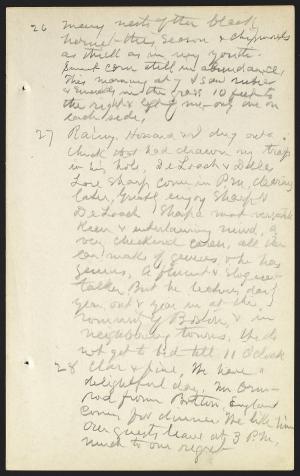 26 many nests of the black
hornet this season & chipmunks
as thick as in my youth.
Sweet corn still in abundance.
This morning at 7 I saw
& in the grass 10 feet to
the right & left of me - only one on
each side.
27 Rainy. Howard & I dug out a
chuck that had drawn in trap
in his hole. DeLoach & Dallas
Lore Sharp come in P.M., clearing
later. Greatly enjoy Sharp &
DeLoach. Sharp a most
keen & entertaining mind, a
very checkered career, all the
ear marks of genius, & he has
genius. A fluent & eloquent
talker. But he lectures, day
year, out & year in at the
of Boston, & in
neighboring towns. We do
not get to bed till 11 O'clock
28 Clear & fine. We have a
delightful day. Mr. Orm-
rod from Bolton, England
comes for dinner. We like him
Our guests leave at 3 P.M.,
much to our regret.